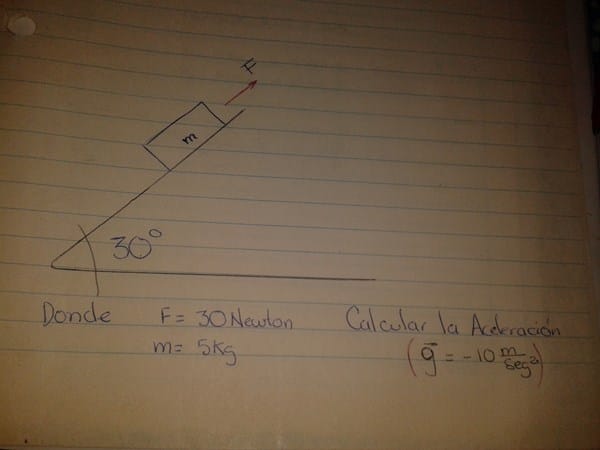 F
m
30°
Donde F = 30 Newton Calcular la Aceleración
m = 5 Kg (g⃗ = -10 m/seg²)